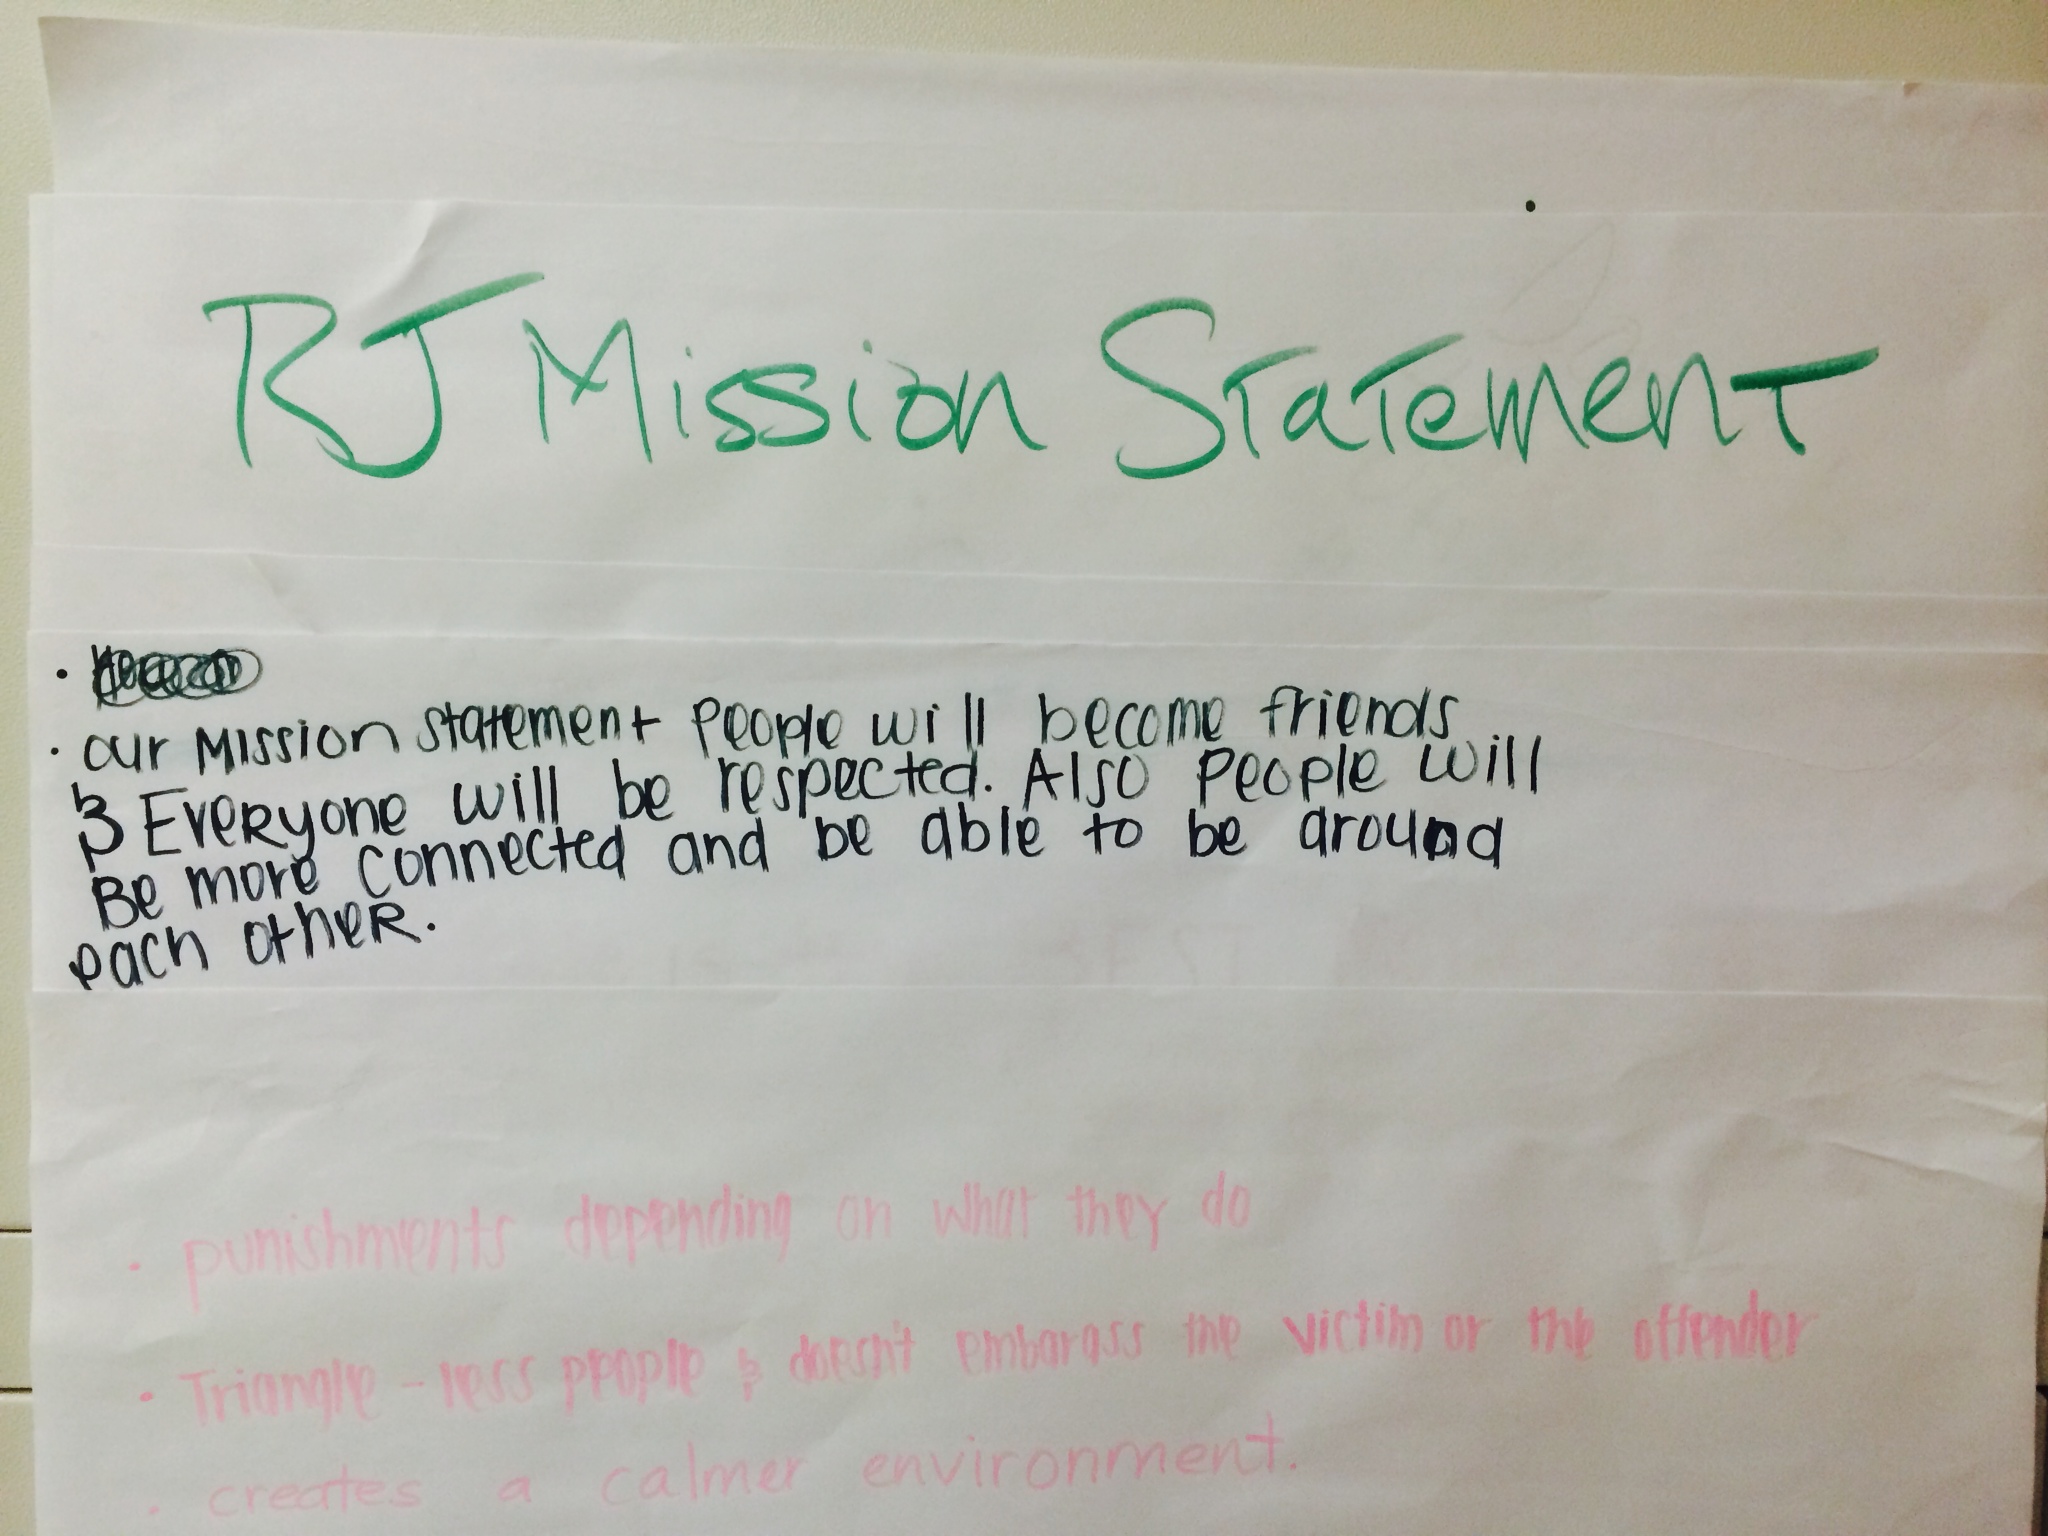 RJ Mission Statement
• our Mission statement people will become friends
& Everyone will be respected. Also people will
Be more connected and be able to be around
each other.
• punishments depending on what they do
• Triangle - less people & doesn't embarass the victim or the offender
• creates a calmer environment.